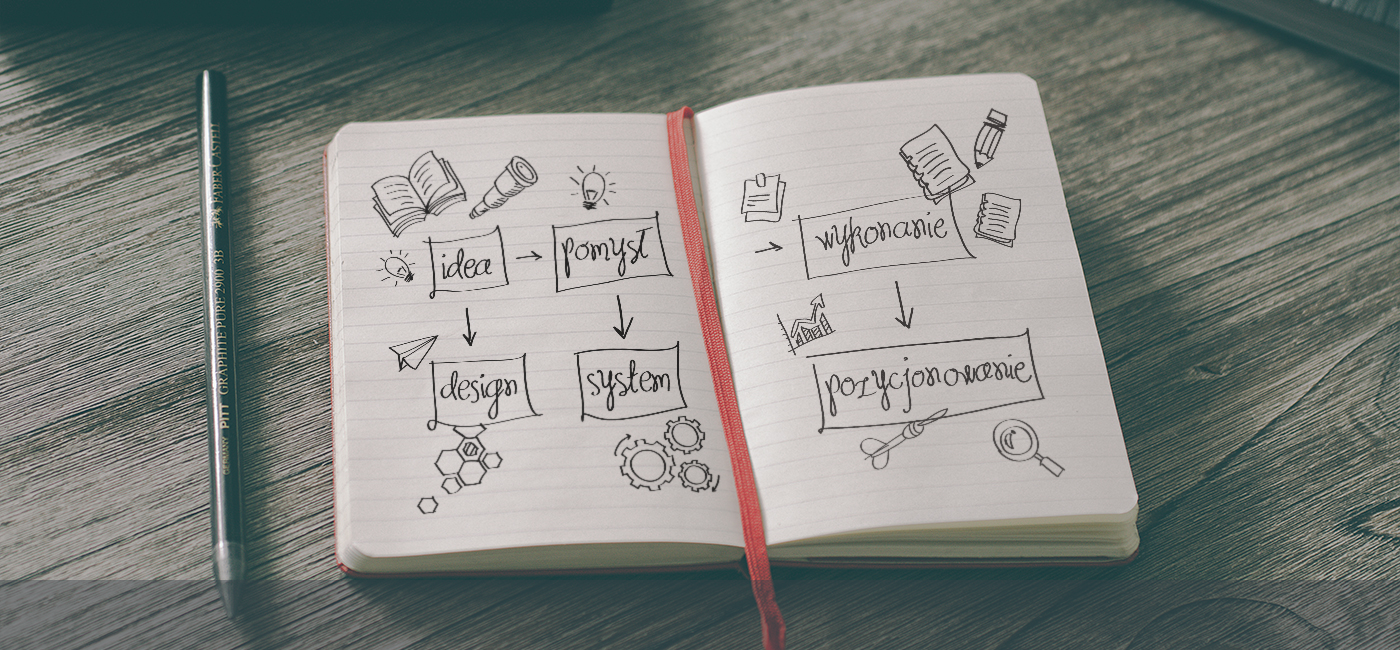 idea
pomysł
design
system
wykonanie
pozycjonowanie
GERMANY PITT GRAPHITE PURE 2900 3B FABER-CASTELL